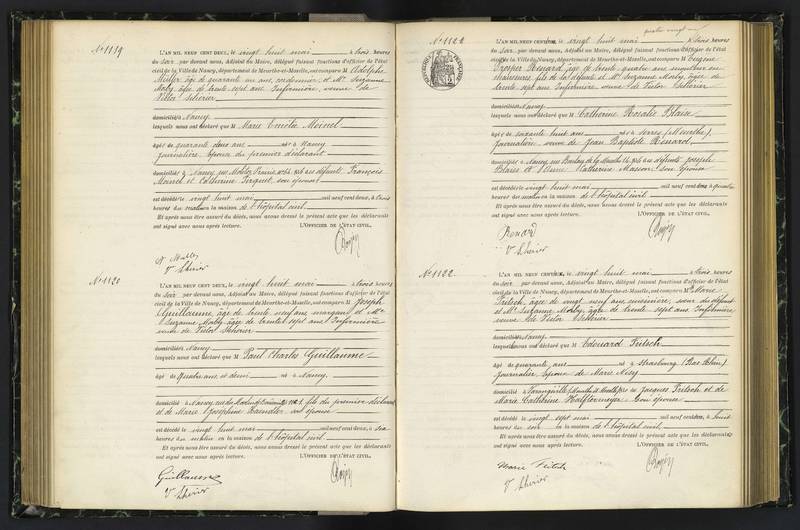 N° 1119
L'AN MIL NEUF CENT DEUX, le vingt huit mai à trois heures
du soir par devant nous, Adjoint au Maire, délégué faisant fonctions d'officier de l'état
civil de la Ville de Nancy, département de Meurthe-et-Moselle, ont comparu M Adolphe
Muller âgé de quarante un ans, cordonnier, et Me Suzanne
Moby, âgée de trente sept ans Infirmière, veuve de
Victor Schérier
domiciliés à Nancy
lesquels nous ont déclaré que M Marie Emilie Moinel
âgée de quarante deux ans né à Nancy
journalière, épouse du premier déclarant
domiciliée à Nancy, rue Mollevaut fille des défunts François
Moinel et Catherine son épouse
est décédée le vingt huit mai mil neuf cent deux, à trois
heures du matin en la maison de l'hôpital civil
Et après nous être assuré du décès, nous avons dressé le présent acte que les déclarants
ont signé avec nous après lecture. L'OFFICIER DE L'ÉTAT CIVIL,
N° 1120
L'AN MIL NEUF CENT DEUX, le vingt huit mai à trois heures
du soir par devant nous, Adjoint au Maire, délégué faisant fonctions d'officier de l'état
civil de la Ville de Nancy, département de Meurthe-et-Moselle, ont comparu M Joseph
Guillaume, âgé de trente neuf ans et Me
Suzanne Moby âgée de trente sept ans Infirmière
veuve de Victor Schérier
domiciliés à Nancy
lesquels nous ont déclaré que M Paul Charles Guillaume
âgé de Quatre ans et demi né à Nancy
domicilié à Nancy, fils du premier déclarant
et de Marie Joséphine son épouse
est décédé le vingt huit mai mil neuf cent deux, à six
heures du matin en la maison de l'hôpital civil
Et après nous être assuré du décès, nous avons dressé le présent acte que les déclarants
ont signé avec nous après lecture. L'OFFICIER DE L'ÉTAT CIVIL,
Guillaume
N° 1121
L'AN MIL NEUF CENT le vingt huit mai à trois heures
du soir par devant nous, Adjoint au Maire, délégué faisant fonctions d'officier de l'état
civil de la Ville de Nancy, département de Meurthe-et-Moselle, ont comparu M Eugène
Prosper Renard, âgé de trente quatre ans
chaussures, fils de la défunte et Me Suzanne Moby âgée de
trente sept ans Infirmière, veuve de Victor Schérier
domiciliés à Nancy
lesquels nous ont déclaré que M Catherine Rosalie Blaise
âgée de soixante huit ans née à Serres (Meurthe),
journalière, veuve de Jean Baptiste Renard
domiciliée à Nancy, fille des défunts Joseph
Blaise et Anne Catherine Masson son épouse
est décédée le vingt huit mai mil neuf cent deux à
heures du matin en la maison de l'hôpital civil
Et après nous être assuré du décès, nous avons dressé le présent acte que les déclarants
ont signé avec nous après lecture. L'OFFICIER DE L'ÉTAT CIVIL,
Renard
N° 1122
L'AN MIL NEUF CENT le vingt huit mai à trois heures
du soir par devant nous, Adjoint au Maire, délégué faisant fonctions d'officier de l'état
civil de la Ville de Nancy, département de Meurthe-et-Moselle, ont comparu Me Marie
Fritsch, âgée de vingt neuf ans cuisinière, soeur du défunt
et Me Suzanne Moby, âgée de trente sept ans Infirmière
veuve de Victor Schérier
domiciliés à Nancy
lesquels nous ont déclaré que M Edouard Fritsch
âgé de quarante ans né à Strasbourg (Bas Rhin)
journalier, époux de Marie Noisy
domicilié à Varangéville fils de Jacques Fritsch et de
Marie Catherine son épouse
est décédé le vingt sept mai mil neuf cent deux, à huit
heures du soir en la maison de l'hôpital civil
Et après nous être assuré du décès, nous avons dressé le présent acte que les déclarants
ont signé avec nous après lecture. L'OFFICIER DE L'ÉTAT CIVIL,
Marie Fritsch